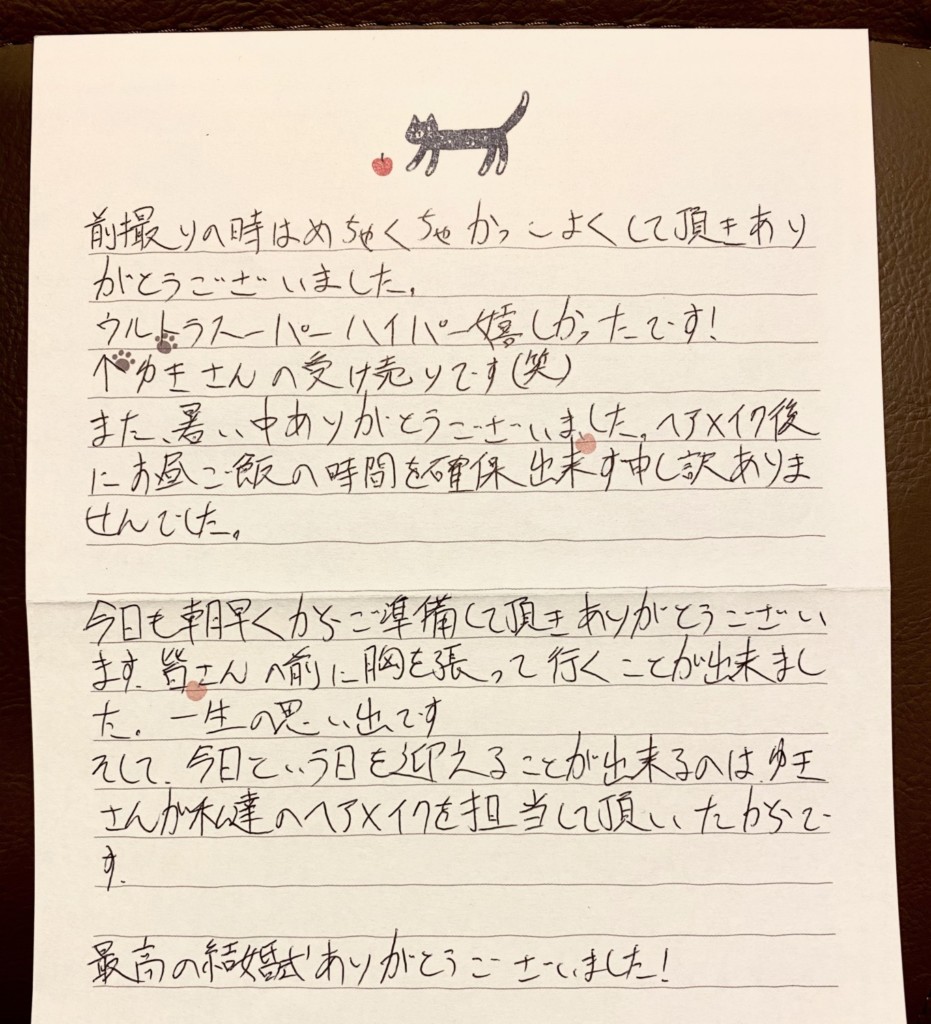 前撮りの時はめちゃくちゃかっこよくして頂きあり
がとうございました。
ウルトラスーパーハイパー嬉しかったです!
↑ゆきさんの受け売りです(笑)
また、暑い中ありがとうございました。ヘアメイク後
にお昼ご飯の時間を確保出来ず申し訳ありま
せんでした。
今日も朝早くからご準備して頂きありがとうござい
ます。皆さんの前に胸を張って行くことが出来まし
た。一生の思い出です
そして、今日という日を迎えることが出来るのは、ゆき
さんが私達のヘアメイクを担当して頂いたからで
す。
最高の結婚式ありがとうございました!